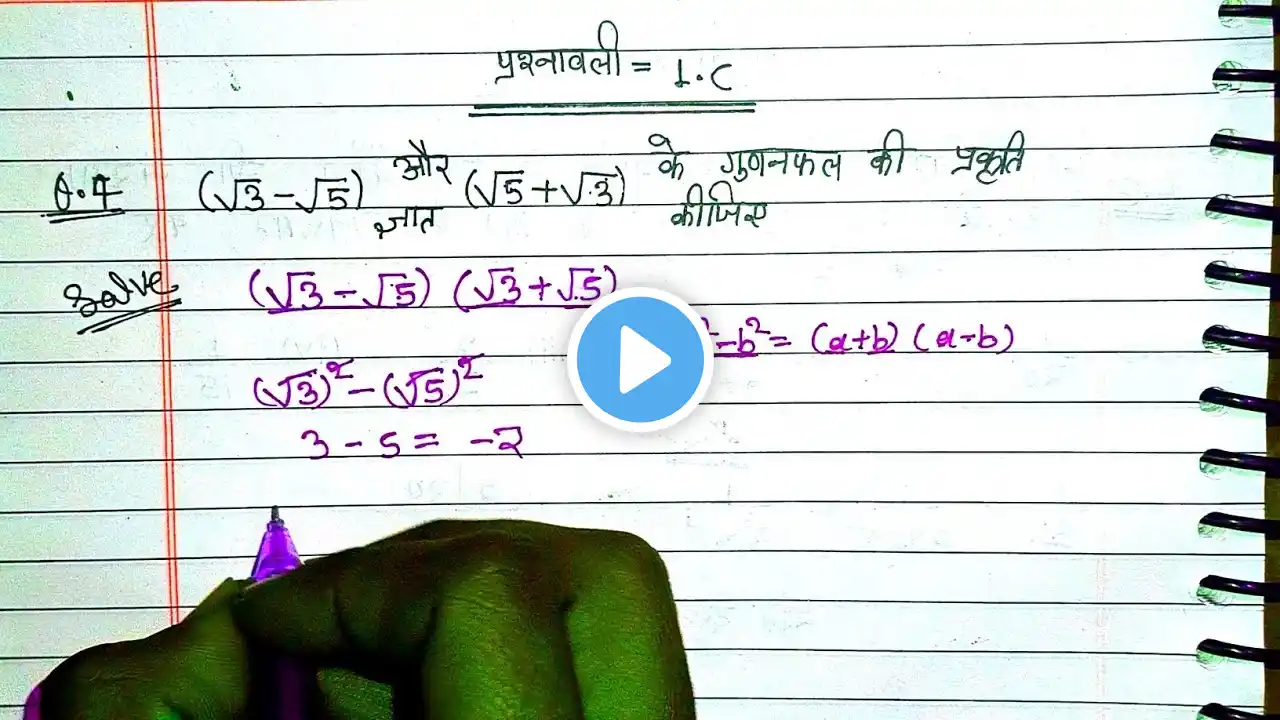 प्रश्नावली = 1.C
Q.4 (√3 - √5) और (√5 + √3) के गुणनफल की प्रकृति
ज्ञात कीजिए
Solve (√3 - √5) (√3 + √5)
²-b² = (a+b) (a-b)
(√3)² - (√5)²
3 - 5 = -2